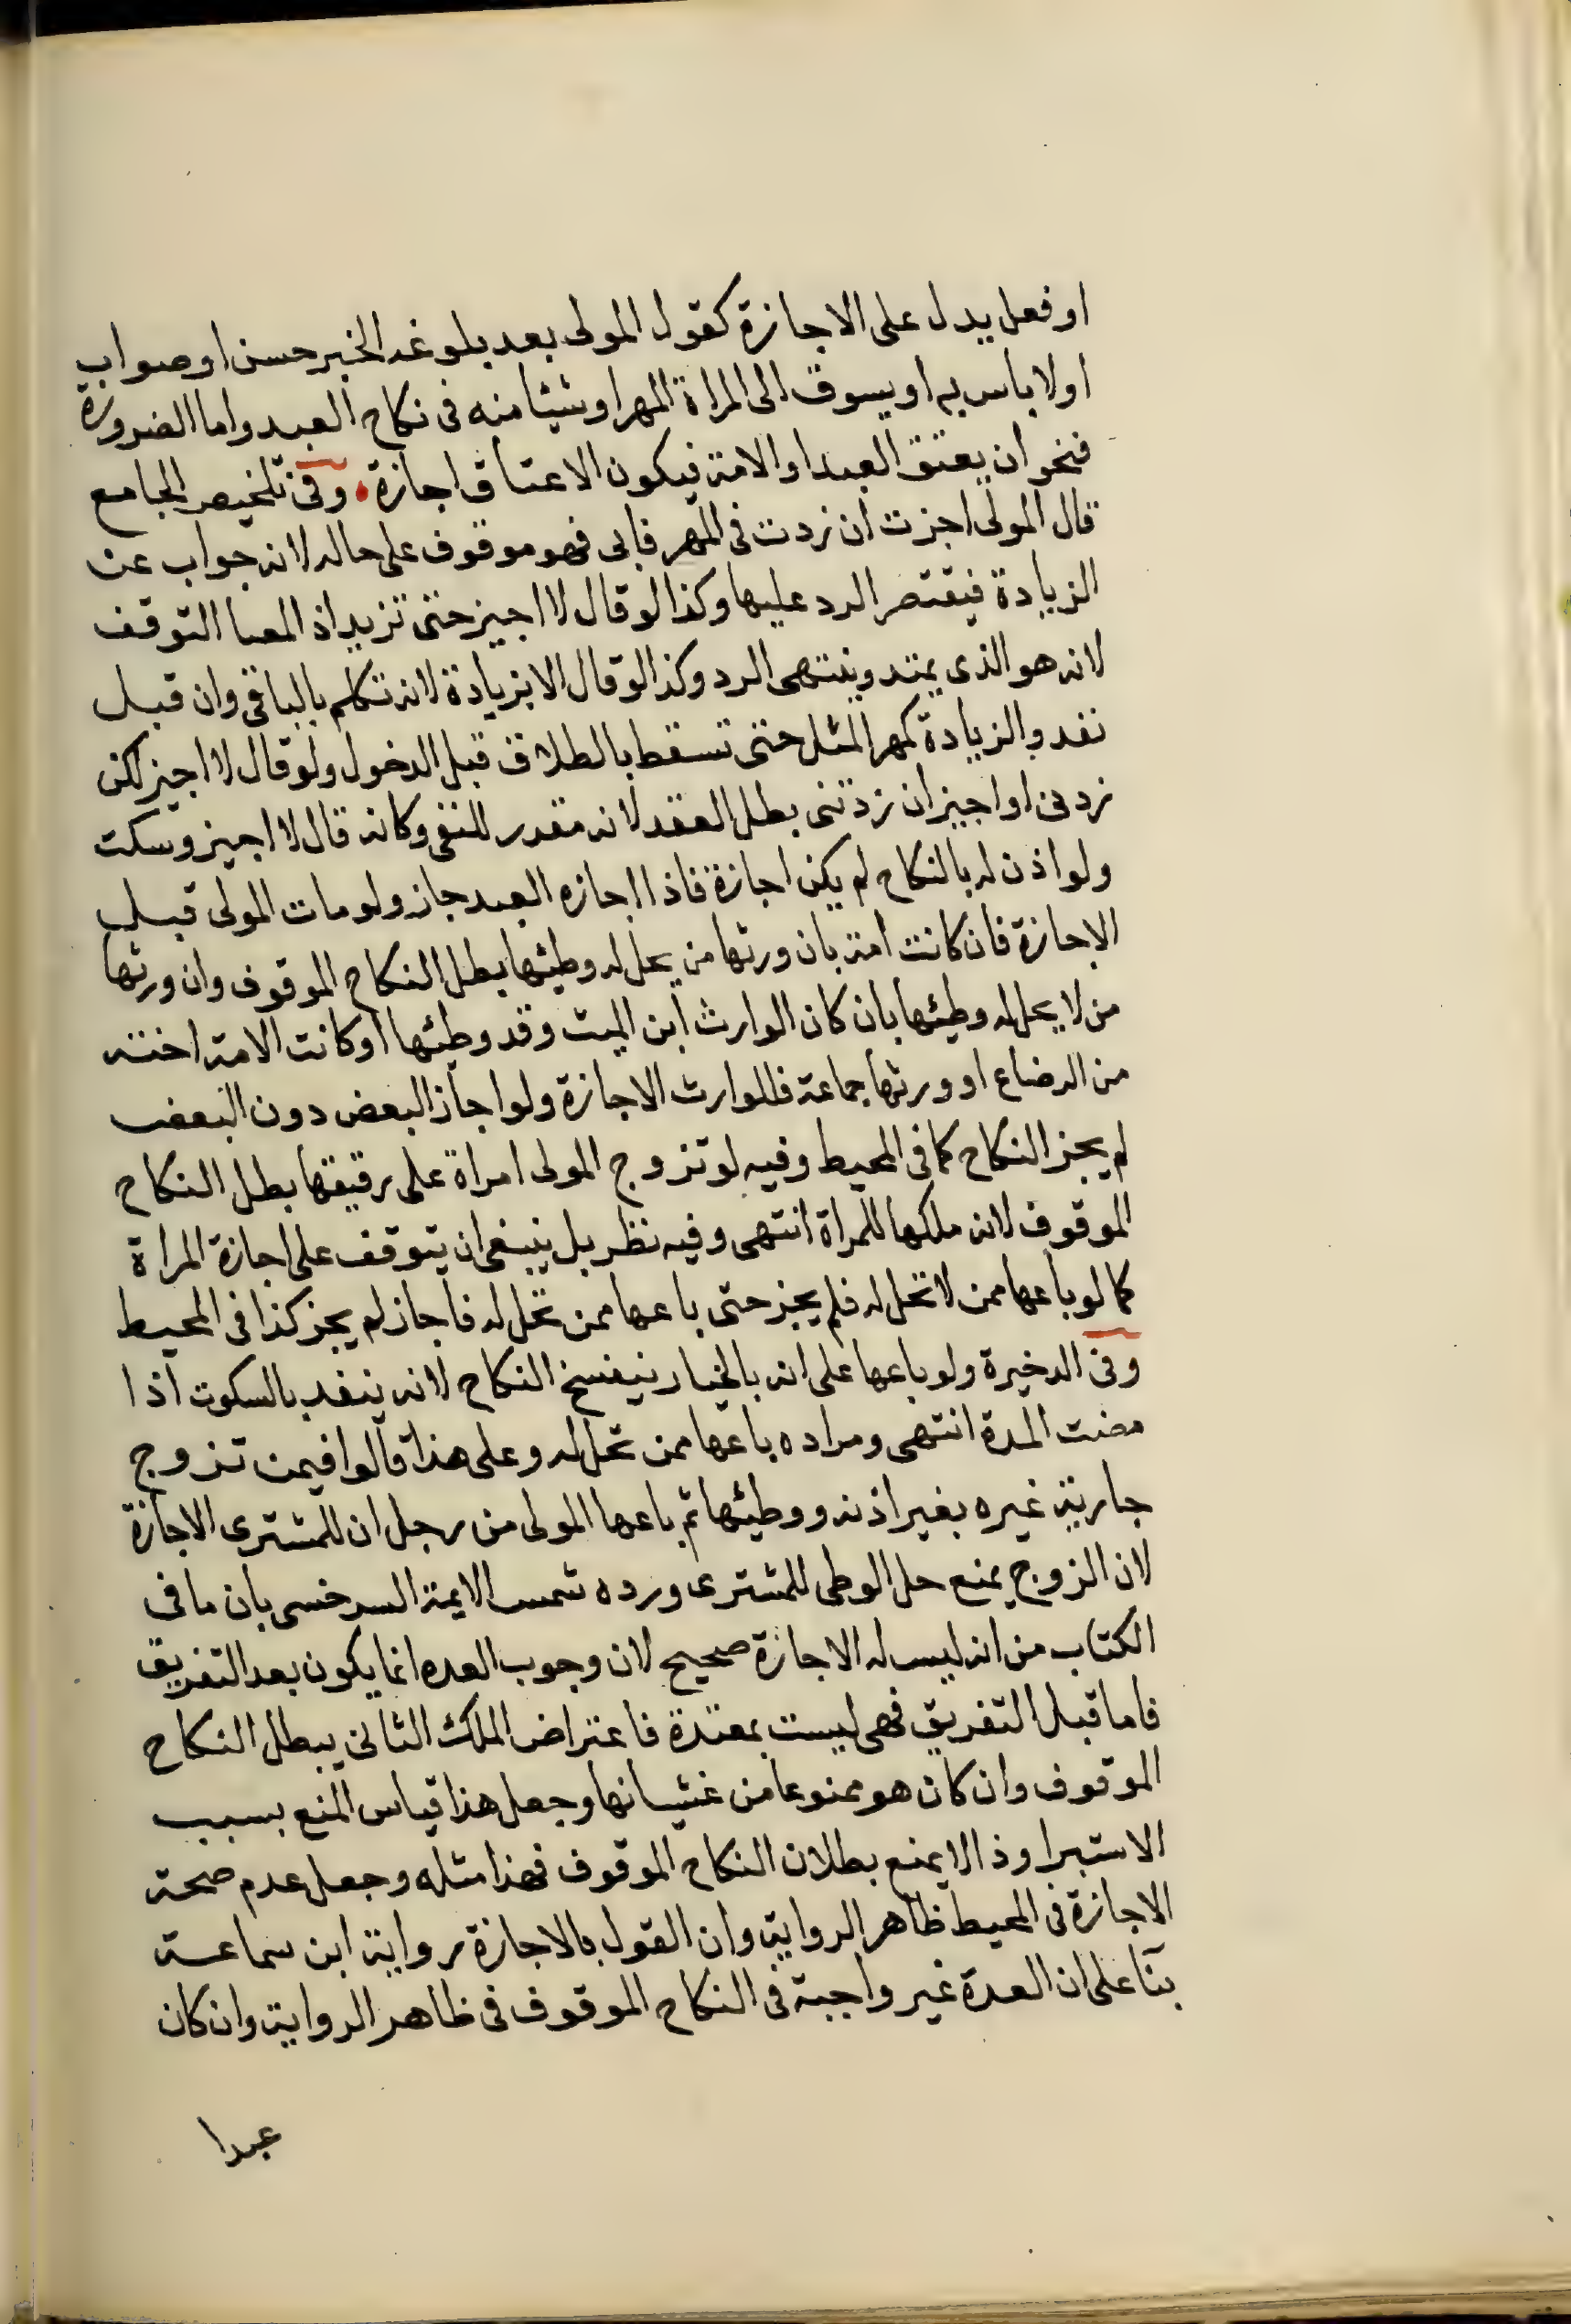 او فعل يدل على الاجازة كقول المولى بعد بلوغه الخبر حسن او صواب
او لا باس به او يسوق الى المراة المهر او شيئا منه فى نكاح العبد واما الضرورة
فنحو ان يعتق العبد او الامة فيكون الاعتاق اجازة . وفى تلخيص الجامع
قال المولى اجزت ان زدت فى المهر فابى فهو موقوف على حاله لانه جواب عن
الزيادة فيقتصر الرد عليها وكذا لو قال لا اجيز حتى تزيد اذ المعيا التوقف
لانه هو الذى يمتد وينتهى الرد وكذا لو قال الا بزيادة لانه تكلم بالباقى وان قبل
نفد والزيادة كمهر المثل حتى تسقط بالطلاق قبل الدخول ولو قال لا اجيز لكن
زدنى او اجيز ان زدتنى بطل العقد لانه مقدر للنفى وكانه قال لا اجيز وسكت
ولو اذن له بالنكاح لم يكن اجازة فاذا اجازه العبد جاز ولو مات المولى قبل
الاجازة فان كانت امة بان ورثها من يحل له وطيئها بطل النكاح الموقوف وان ورثها
من لا يحل له وطيئها بان كان الوارث ابن الميت وقد وطيئها او كانت الامة اخته
من الرضاع او ورثها جماعة فللوارث الاجازة ولو اجاز البعض دون البعض
لم يجز النكاح كما فى المحيط وفيه لو تزوج المولى امراة على رقيقها بطل النكاح
الموقوف لانه ملكها للمراة انتهى وفيه نظر بل ينبغى ان يتوقف على اجازة المراة
كما لو باعها ممن لا تحل له فلم يجز حتى باعها ممن تحل له فاجاز لم يجز كذا فى المحيط
وفى الدخيرة ولو باعها على انه بالخيار ينفسخ النكاح لانه ينفد بالسكوت اذا
مضت المدة انتهى ومراده باعها ممن تحل له وعلى هذا قالوا فيمن تزوج
جارية غيره بغير اذنه ووطيئها ثم باعها المولى من رجل ان للمشترى الاجازة
لان الزوج يمنع حل الوطى للمشترى ورده شمس الايمة السرخسى بان ما فى
الكتاب من انه ليس له الاجازة صحيح لان وجوب العده انما يكون بعد التفريق
فاما قبل التفريق فهى ليست بمعتدة فاعتراض الملك الثانى يبطل النكاح
الموقوف وان كان هو ممنوعا من غشيانها وجعل هذا قياس المنع بسبب
الاستبرا وذا لا يمنع بطلان النكاح الموقوف فهذا مثله وجعل عدم صحة
الاجازة فى المحيط ظاهر الرواية وان القول بالاجازة رواية ابن سماعة
بنآ على ان العدة غير واجبة فى النكاح الموقوف فى ظاهر الرواية وان كان
عبدا